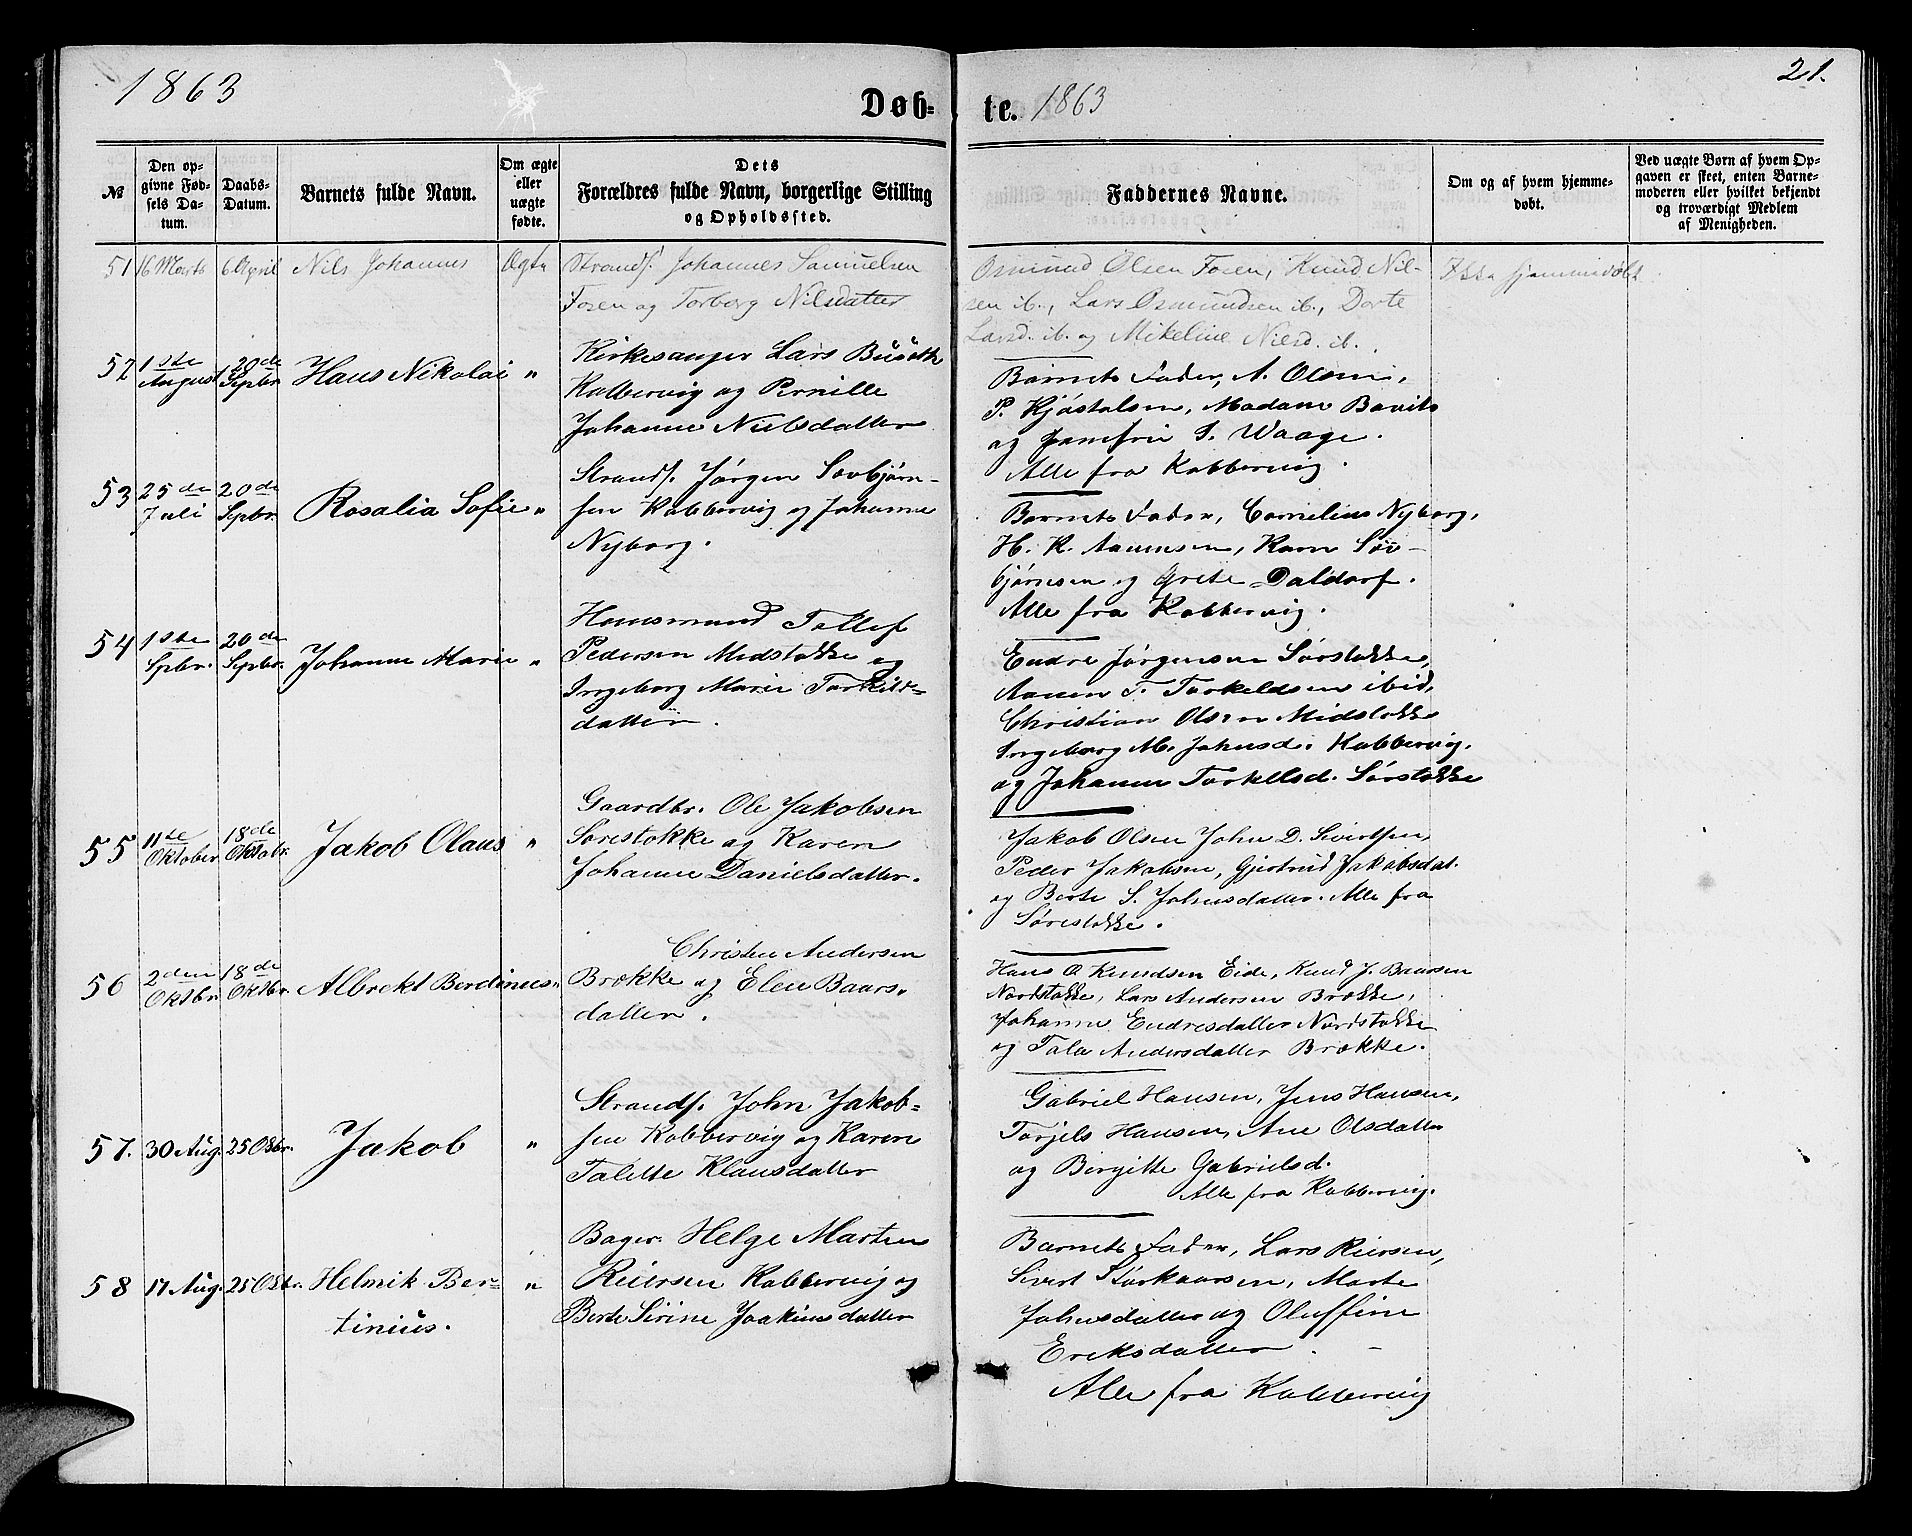 1863
Døb-
te. 1863
21.
№
Den op-
givne Fød-
sels Da-
tum.
Daabs-
Datum.
Barnets fulde Navn.
Om ægte
eller
uægte
fødte.
Dets
Forældres fulde Navn, borgerlige Stilling
og Opholdssted.
Faddernes Navne.
Om og af hvem hjemme-
døbt.
Ved uægte Børn af hvem Op-
gaven er skeet, enten Barne-
moderen eller hvilket bekjendt
og troværdigt Medlem
af Menigheden.
51 16 Marts 6 April Nils Johannes Ægte
Strands. Johannes Samuelsen
Fosen og Torberg Nilsdatter
Osmund Olsen Fosen, Knud Nil-
sen ib., Lars Osmundsen ib., Dorte
Larsd. ib. og Mikeline Nilsd. ib.
hjemmedøbt
52 1ste August 20de Sepbr. Hans Nikolai "
Kirkesanger Lars
Kobbervig og Pernille
Johanne Nielsdatter
Barnets Fader, A. Olsen,
P. Kjøstolsen, Madam
og Jomfru S. Waage.
Alle fra Kobbervig.
53 25de Juli 20de Sepbr. Rosalia Sofie "
Strands. Jørgen Sovbjørn-
sen Kobbervig og Johanne
Nyborg.
Barnets Fader, Cornelius Nyborg,
H. K. Aanensen, Karn Søv-
bjørnsen og Grete Daldorf.
Alle fra Kobbervig.
54 1ste Spbr. 20de Sepbr. Johanne Marie "
Huusmand Tollef
Pedersen Midstokke og
Ingeborg Marie Torkilds-
datter.
Endre Jørgensen Sørstokke,
Aanen T. Torkeldsen ibid,
Christian Olsen Midstokke
Ingeborg M. Johnsd. Kobbervig.
og Johanne Torkelsd. Sørstokke
55 11te Oktober 18de Oktobr. Jakob Olaus "
Gaardbr. Ole Jakobsen
Sørestokke og Karen
Johanne Danielsdatter.
Jakob Olsen John D. Sivertsen,
Peder Jakobsen, Gjertrud Jakobsdat.
og Berte S. Johnsdatter. Alle fra
Sørestokke.
56 2den Oktbr 18de Oktbr. Albrekt Berdinius "
Christen Andersen
Brække og Elen Baars-
datter.
Hans O. Knudsen Eide, Knud J. Baarsen
Nordstokke, Lars Andersen Brække,
Johanne Endresdatter Nordstokke
og Tala Andersdatter Brække.
57. 30 Aug. 25 Oktbr. Jakob "
Strands. John Jakob-
sen Kobbervig og Karen
Talette Klausdatter
Gabriel Hansen, Jens Hansen,
Torjels Hansen, Ane Olsdatter
og Birgitte Gabrielsd.
Alle fra Kobbervig.
58 17 Aug. 25 Oktbr. Helmik Ber-
tinius. "
Bager. Helge Marten
Reiersen Kobbervig og
Berte Sirine Joakimsdatter
Barnets Fader, Lars Reiersen,
Sivert Storkaarsen, Marte
Johnsdatter og Oluffine
Eriksdatter.
Alle fra Kobbervig